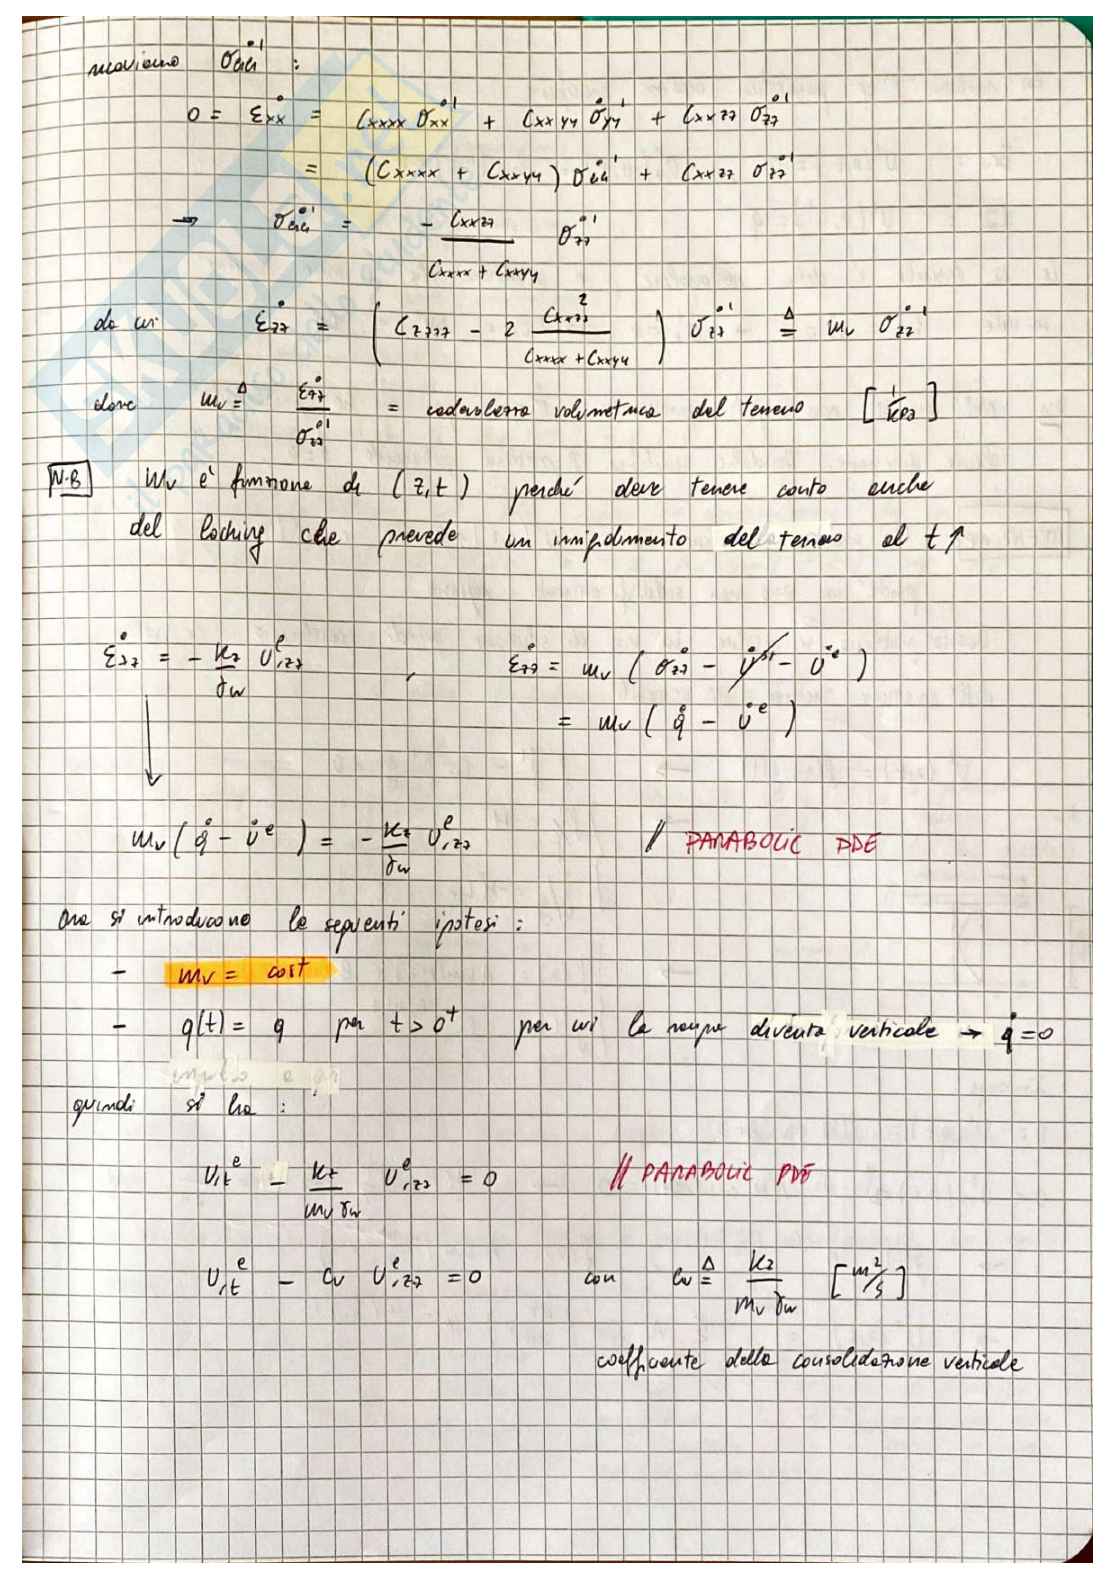 ricaviamo σ̇aa' :
0 = ε̇xx = Cxxxx σ̇xx' + Cxxyy σ̇yy' + Cxxzz σ̇zz'
= (Cxxxx + Cxxyy) σ̇aa' + Cxxzz σ̇zz'
→ σ̇aa' = - Cxxzz / (Cxxxx + Cxxyy) σ̇zz'
da cui ε̇zz = ( Czzzz - 2 Cxxzz² / (Cxxxx + Cxxyy) ) σ̇zz' ≜ mv σ̇zz'
dove mv ≜ ε̇zz / σ̇zz' = cedevolezza volumetrica del terreno [1/kPa]
N.B mv è funzione di (z,t) perché deve tenere conto anche
del locking che prevede un irrigidimento del terreno al t↑
ε̇zz = - kz/γw U,zz^e , ε̇zz = mv ( σ̇zz - U̇^st - U̇^e )
= mv ( q̇ - U̇^e )
mv ( q̇ - U̇^e ) = - kz/γw U,zz^e // PARABOLIC PDE
Ora si introducono le seguenti ipotesi :
- mv = cost
- q(t) = q per t > 0⁺ per cui la rampa diventa verticale → q̇ = 0
quindi si ha :
U,t^e - kz/(mv γw) U,zz^e = 0 // PARABOLIC PDE
U,t^e - cv U,zz^e = 0 con cv ≜ kz/(mv γw) [m²/s]
coefficiente della consolidazione verticale